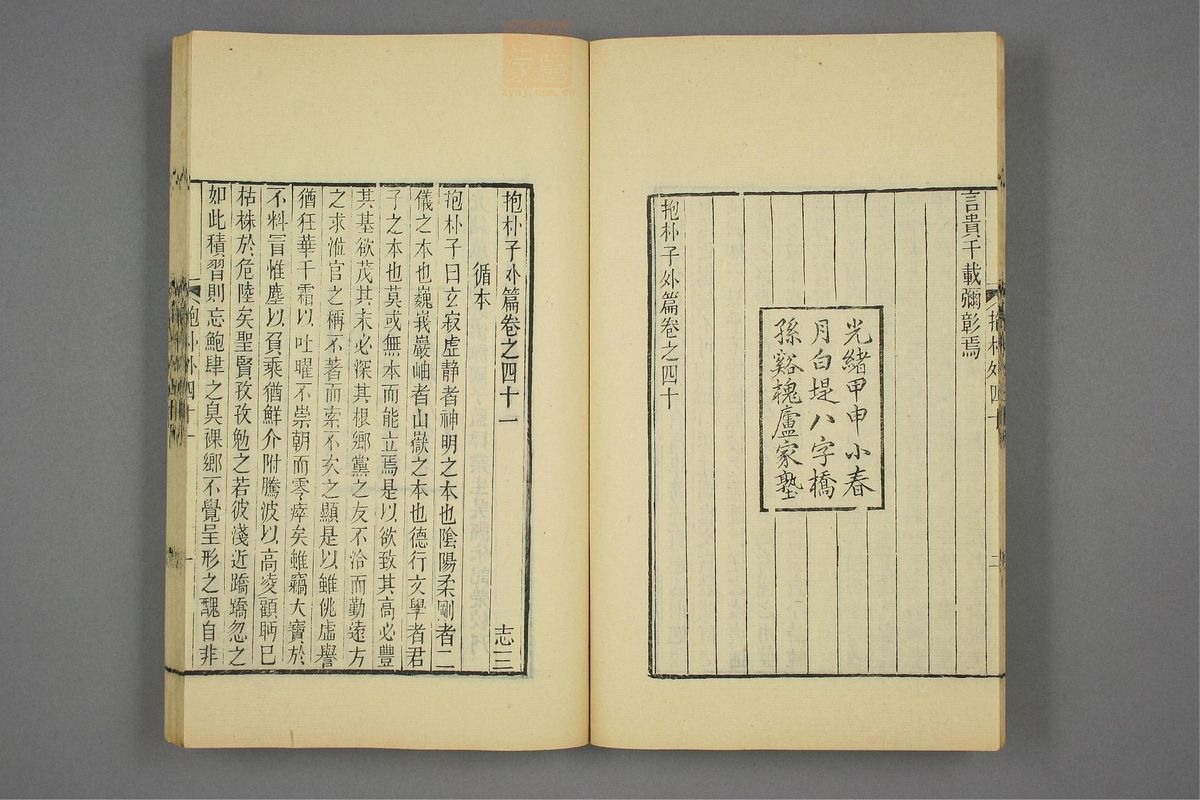 言貴千載彌彰焉
光緒甲申小春
月白堤八字橋
孫谿槐廬家塾
抱朴子外篇卷之四十
抱朴外四十
二
抱朴子外篇卷之四十一
志三
循本
抱朴子曰玄寂虛静者神明之本也陰陽柔剛者二
儀之本也巍峩巖岫者山嶽之本也德行文學者君
子之本也莫或無本而能立焉是以欲致其高必豐
其基欲茂其末必深其根鄉黨之友不洽而勤遠方
之求涖官之稱不著而索不次之顯是以雖佻虛譽
猶狂華干霜以吐曜不崇朝而零瘁矣雖竊大寶於
不料冒惟塵以負乘猶鮮介附騰波以高凌顧眄已
枯株於危陸矣聖賢孜孜勉之若彼淺近蹻蹻忽之
如此積習則忘鮑肆之臭裸鄉不覺呈形之醜自非
抱朴外四十一
一